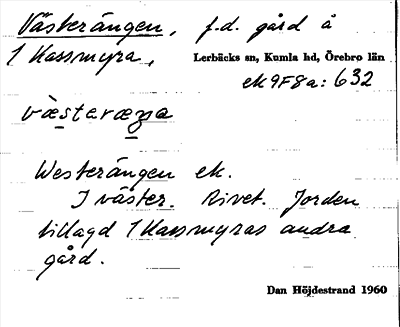 Västerängen, f.d. gård å
1 Kassmyra,
Lerbäcks sn, Kumla hd, Örebro län
ek 9F8a: 632
Westerängen ek.
I väster. Rivet. Jorden
tillagd 1 Kassmyras andra
gård.
Dan Höjdestrand 1960